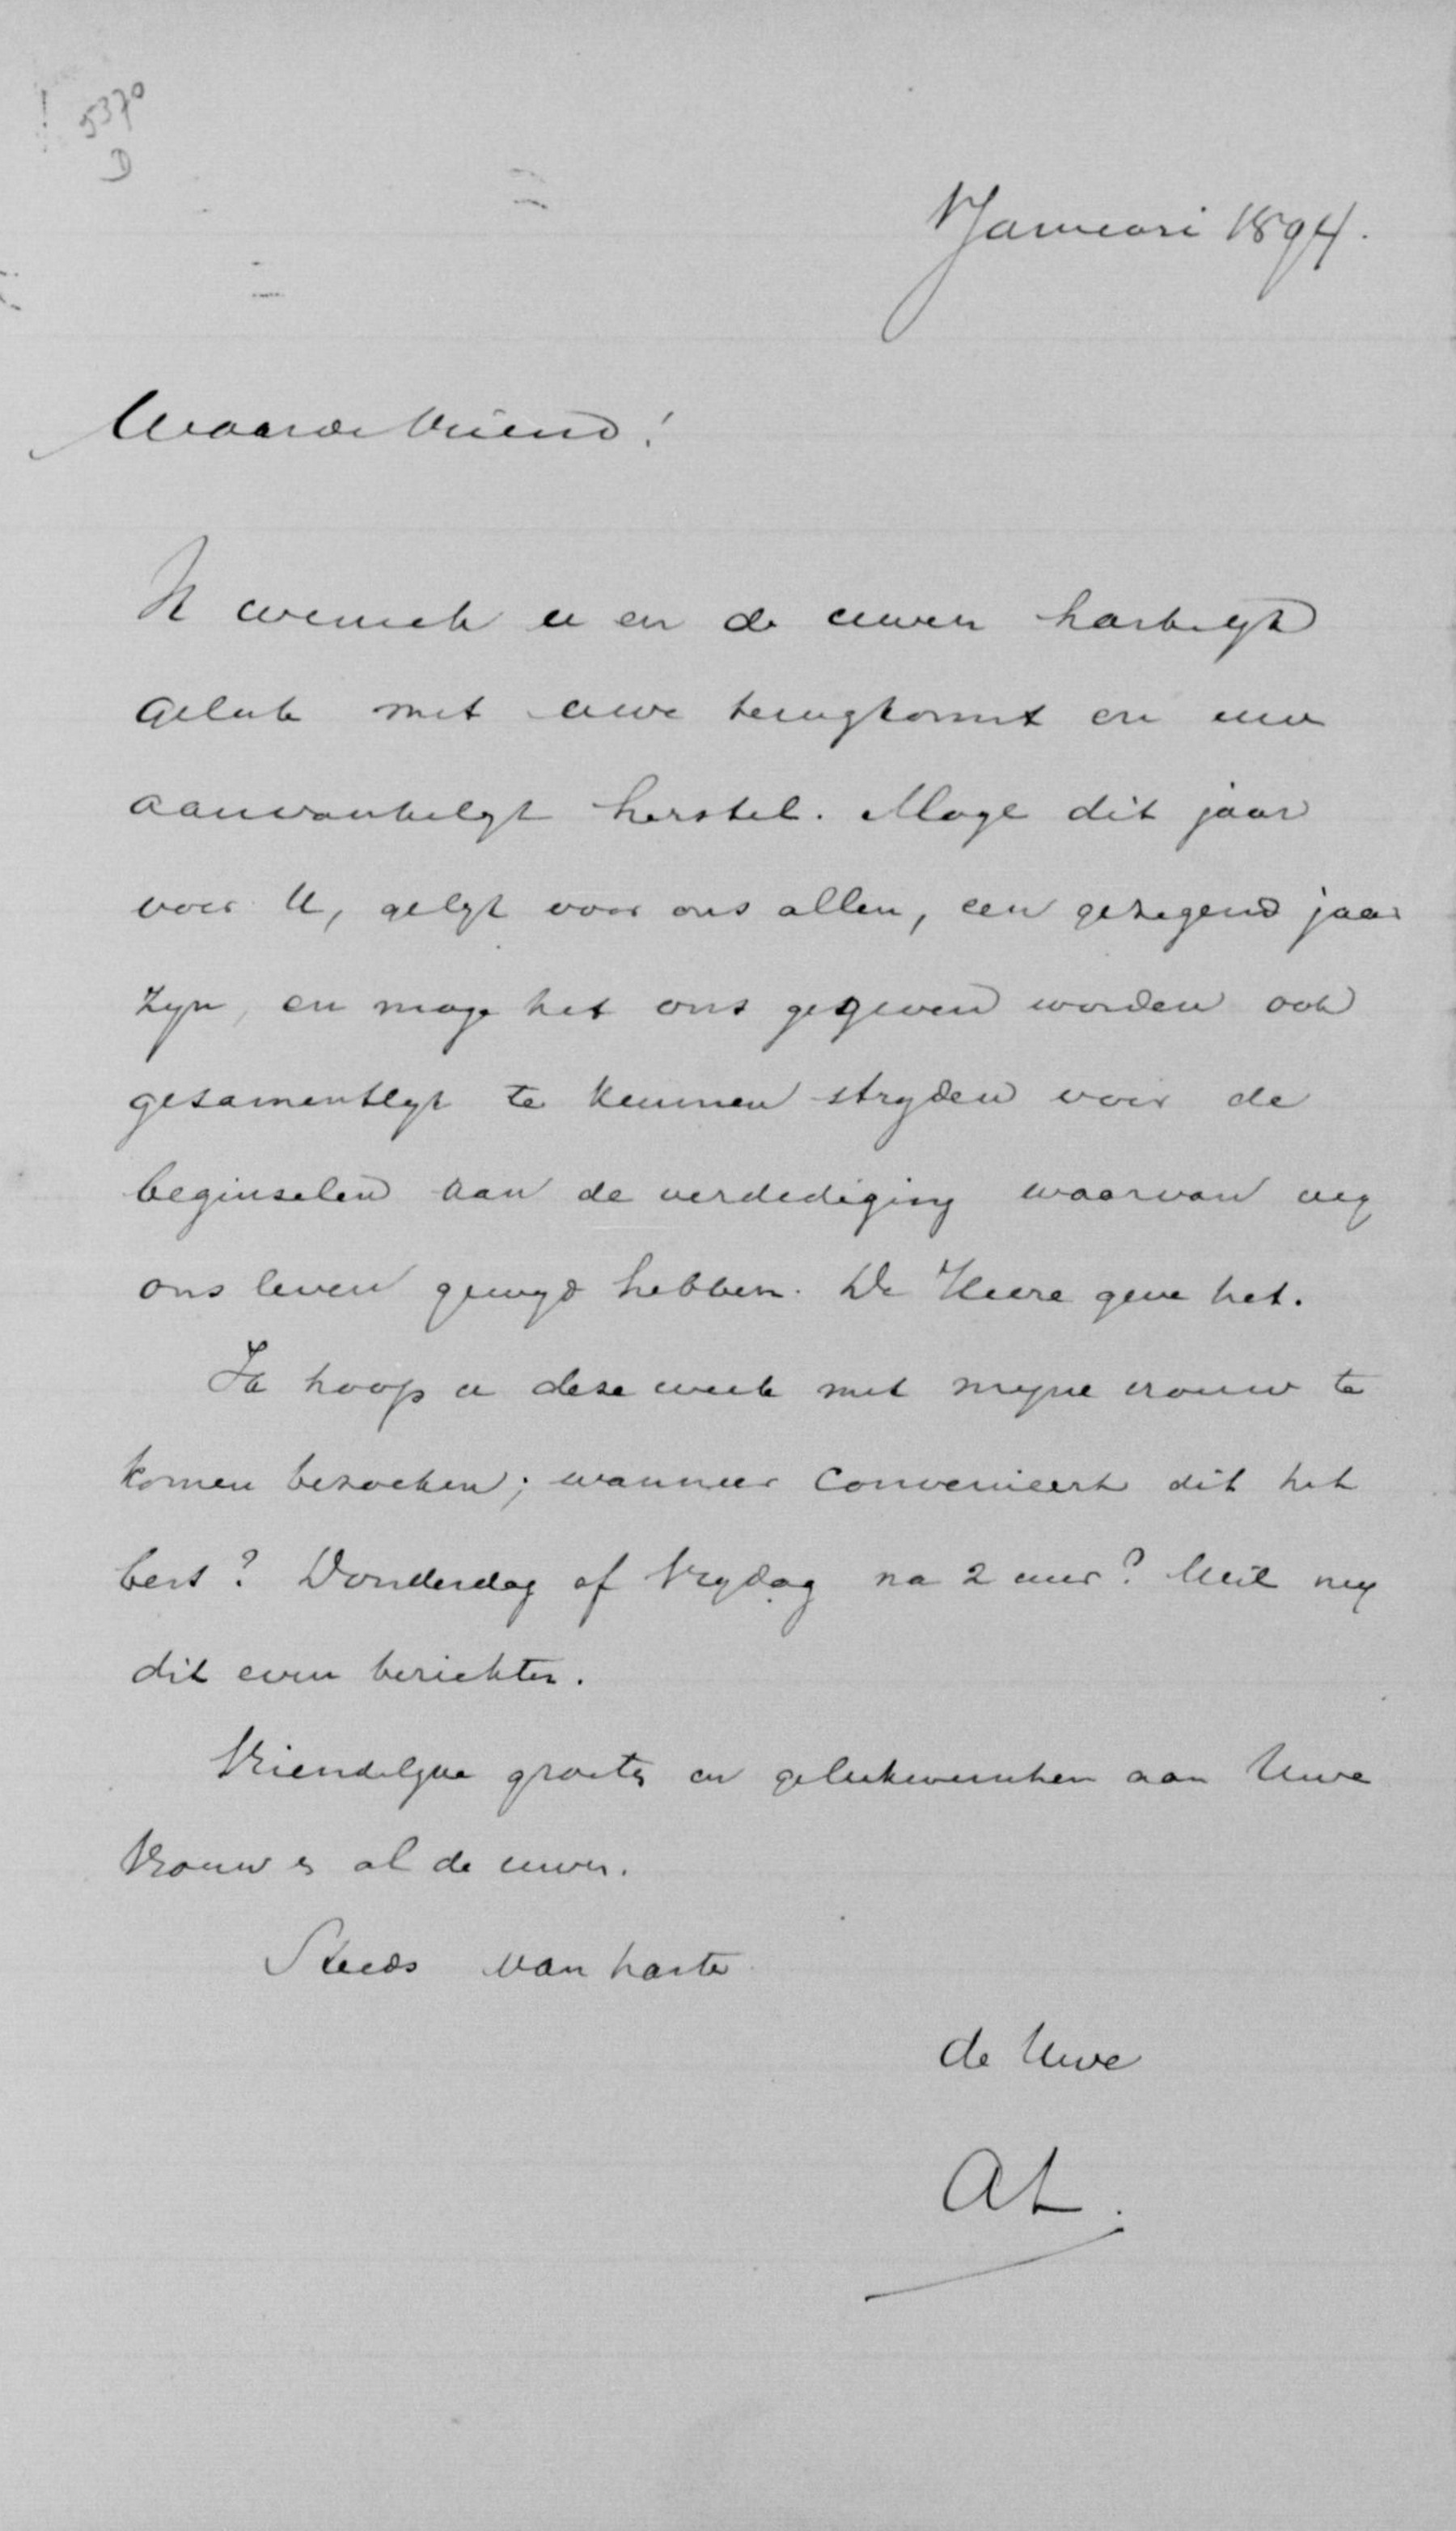 5370
D
1 Januari 1894.
Waarde Vriend!
Ik wensch u en de uwen hartelijk
geluk met uwe terugkomst en uw
aanvankelijk herstel. Moge dit jaar
voor U, gelijk voor ons allen, een gezegend jaar
zijn, en moge het ons gegeven worden ook
gezamentlijk te kunnen strijden voor de
beginselen aan de verdediging waarvan wij
ons leven gewijd hebben. De Heere geve het.
Ik hoop u deze week met mijne vrouw te
komen bezoeken; wanneer convenieert dit het
best? Donderdag of Vrijdag na 2 uur? Wil mij
dit even berichten.
Vriendelijke groeten en gelukwenschen aan Uwe
Vrouw & al de uwen.
Steeds van harte
de Uwe
AL.